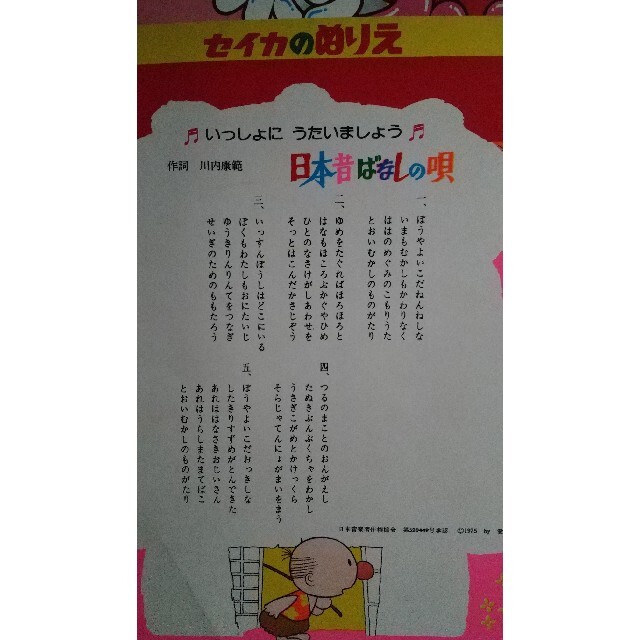 セイカのぬりえ
いっしょに うたいましょう
日本昔ばなしの唄
作詞 川内康範
一、ぼうやよいこだねんねしな
いまもむかしもかわりなく
ははのめぐみのこもりうた
とおいむかしのものがたり
二、ゆめをたぐればほろほろと
はなもほころぶかぐやひめ
ひとのなさけがしあわせを
そっとはこんだかさじぞう
三、いっすんぼうしはどこにいる
ぼくもわたしもおにたいじ
ゆうきりんりんてをつなぎ
せいぎのためのももたろう
四、つるのまことのおんがえし
たぬきぶんぶくちゃをわかし
うさぎこがめとかけっくら
そらじゃてんにょがまいをまう
五、ぼうやよいこだおっきしな
したきりすずめがとんできた
あれははなさきおじいさん
あれはうらしまたまてばこ
とおいむかしのものがたり
日本音楽著作権協会
©1975 by